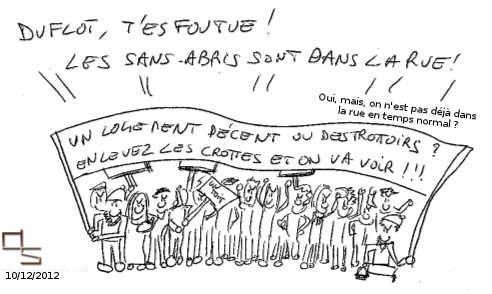 DUFLOT, T'ES FOUTUE !
LES SANS-ABRIS SONT DANS LA RUE !
Oui, mais, on n'est pas déjà dans
la rue en temps normal ?
UN LOGEMENT DÉCENT OU DES TROTTOIRS ?
ENLEVEZ LES CROTTES ET ON VA VOIR !!!
UN
TOIT
DS
10/12/2012